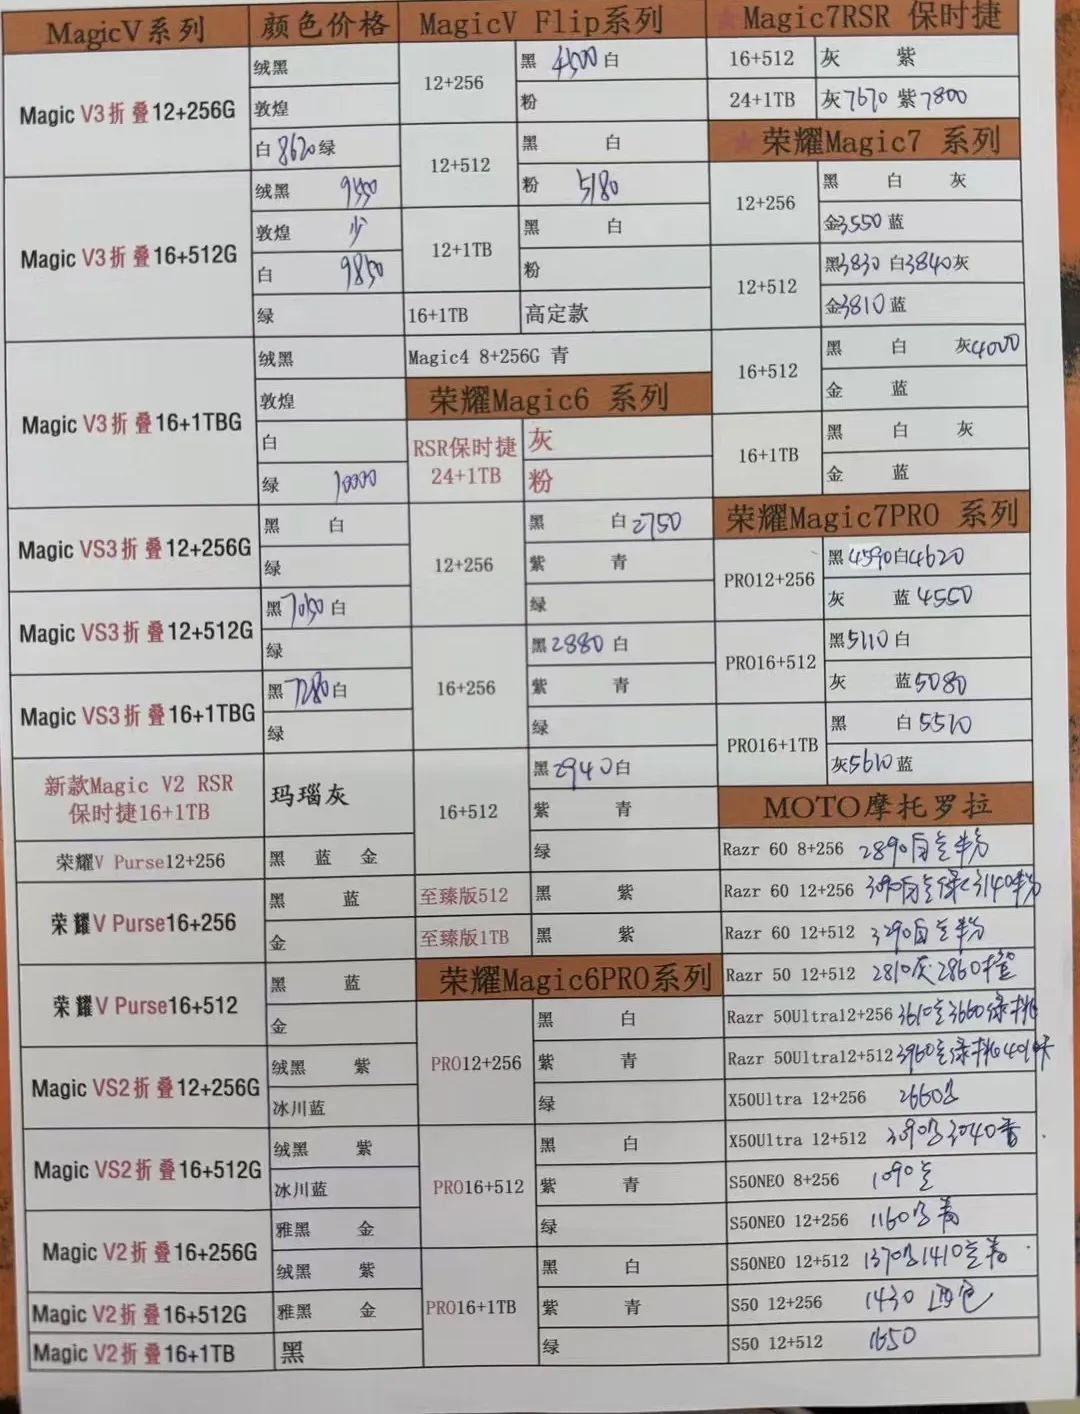 MagicV系列 颜色价格
Magic V3折叠12+256G
绒黑
敦煌
白 8620 绿
Magic V3折叠16+512G
绒黑 9550
敦煌 少
白 9850
绿
Magic V3折叠16+1TBG
绒黑
敦煌
白
绿 10000
Magic VS3折叠12+256G
黑 白
绿
Magic VS3折叠12+512G
黑 7050 白
绿
Magic VS3折叠16+1TBG
黑 7280 白
绿
新款Magic V2 RSR
保时捷16+1TB
玛瑙灰
荣耀V Purse12+256
黑 蓝 金
荣耀V Purse16+256
黑 蓝
金
荣耀V Purse16+512
黑 蓝
金
Magic VS2折叠12+256G
绒黑 紫
冰川蓝
Magic VS2折叠16+512G
绒黑 紫
冰川蓝
Magic V2折叠16+256G
雅黑 金
绒黑 紫
Magic V2折叠16+512G
雅黑 金
Magic V2折叠16+1TB
黑
MagicV Flip系列
12+256
黑 4500 白
粉
12+512
黑 白
粉 5180
12+1TB
黑 白
粉
16+1TB 高定款
Magic4 8+256G 青
荣耀Magic6 系列
RSR保时捷
24+1TB
灰
粉
12+256
黑 白2750
紫 青
绿
16+256
黑2880 白
紫 青
绿
16+512
黑2940白
紫 青
绿
至臻版512 黑 紫
至臻版1TB 黑 紫
荣耀Magic6PRO系列
PRO12+256
黑 白
紫 青
绿
PRO16+512
黑 白
紫 青
绿
PRO16+1TB
黑 白
紫 青
绿
★Magic7RSR 保时捷
16+512 灰 紫
24+1TB 灰7670 紫7800
★荣耀Magic7 系列
12+256
黑 白 灰
金3550 蓝
12+512
黑3830 白3840灰
金3810 蓝
16+512
黑 白 灰4000
金 蓝
16+1TB
黑 白 灰
金 蓝
荣耀Magic7PRO 系列
PRO12+256
黑4590白4620
灰 蓝4550
PRO16+512
黑5110 白
灰 蓝5080
PRO16+1TB
黑 白5510
灰5610 蓝
MOTO摩托罗拉
Razr 60 8+256 2890 粉
Razr 60 12+256 3140粉
Razr 60 12+512 3290 粉
Razr 50 12+512 2810灰 2860橙
Razr 50Ultra12+256 3610 3660绿桃
Razr 50Ultra12+512 3960 绿桃
X50Ultra 12+256 2660
X50Ultra 12+512 3040
S50NEO 8+256 1090
S50NEO 12+256 1160 青
S50NEO 12+512 1370 1410
S50 12+256 1430 四色
S50 12+512 1650